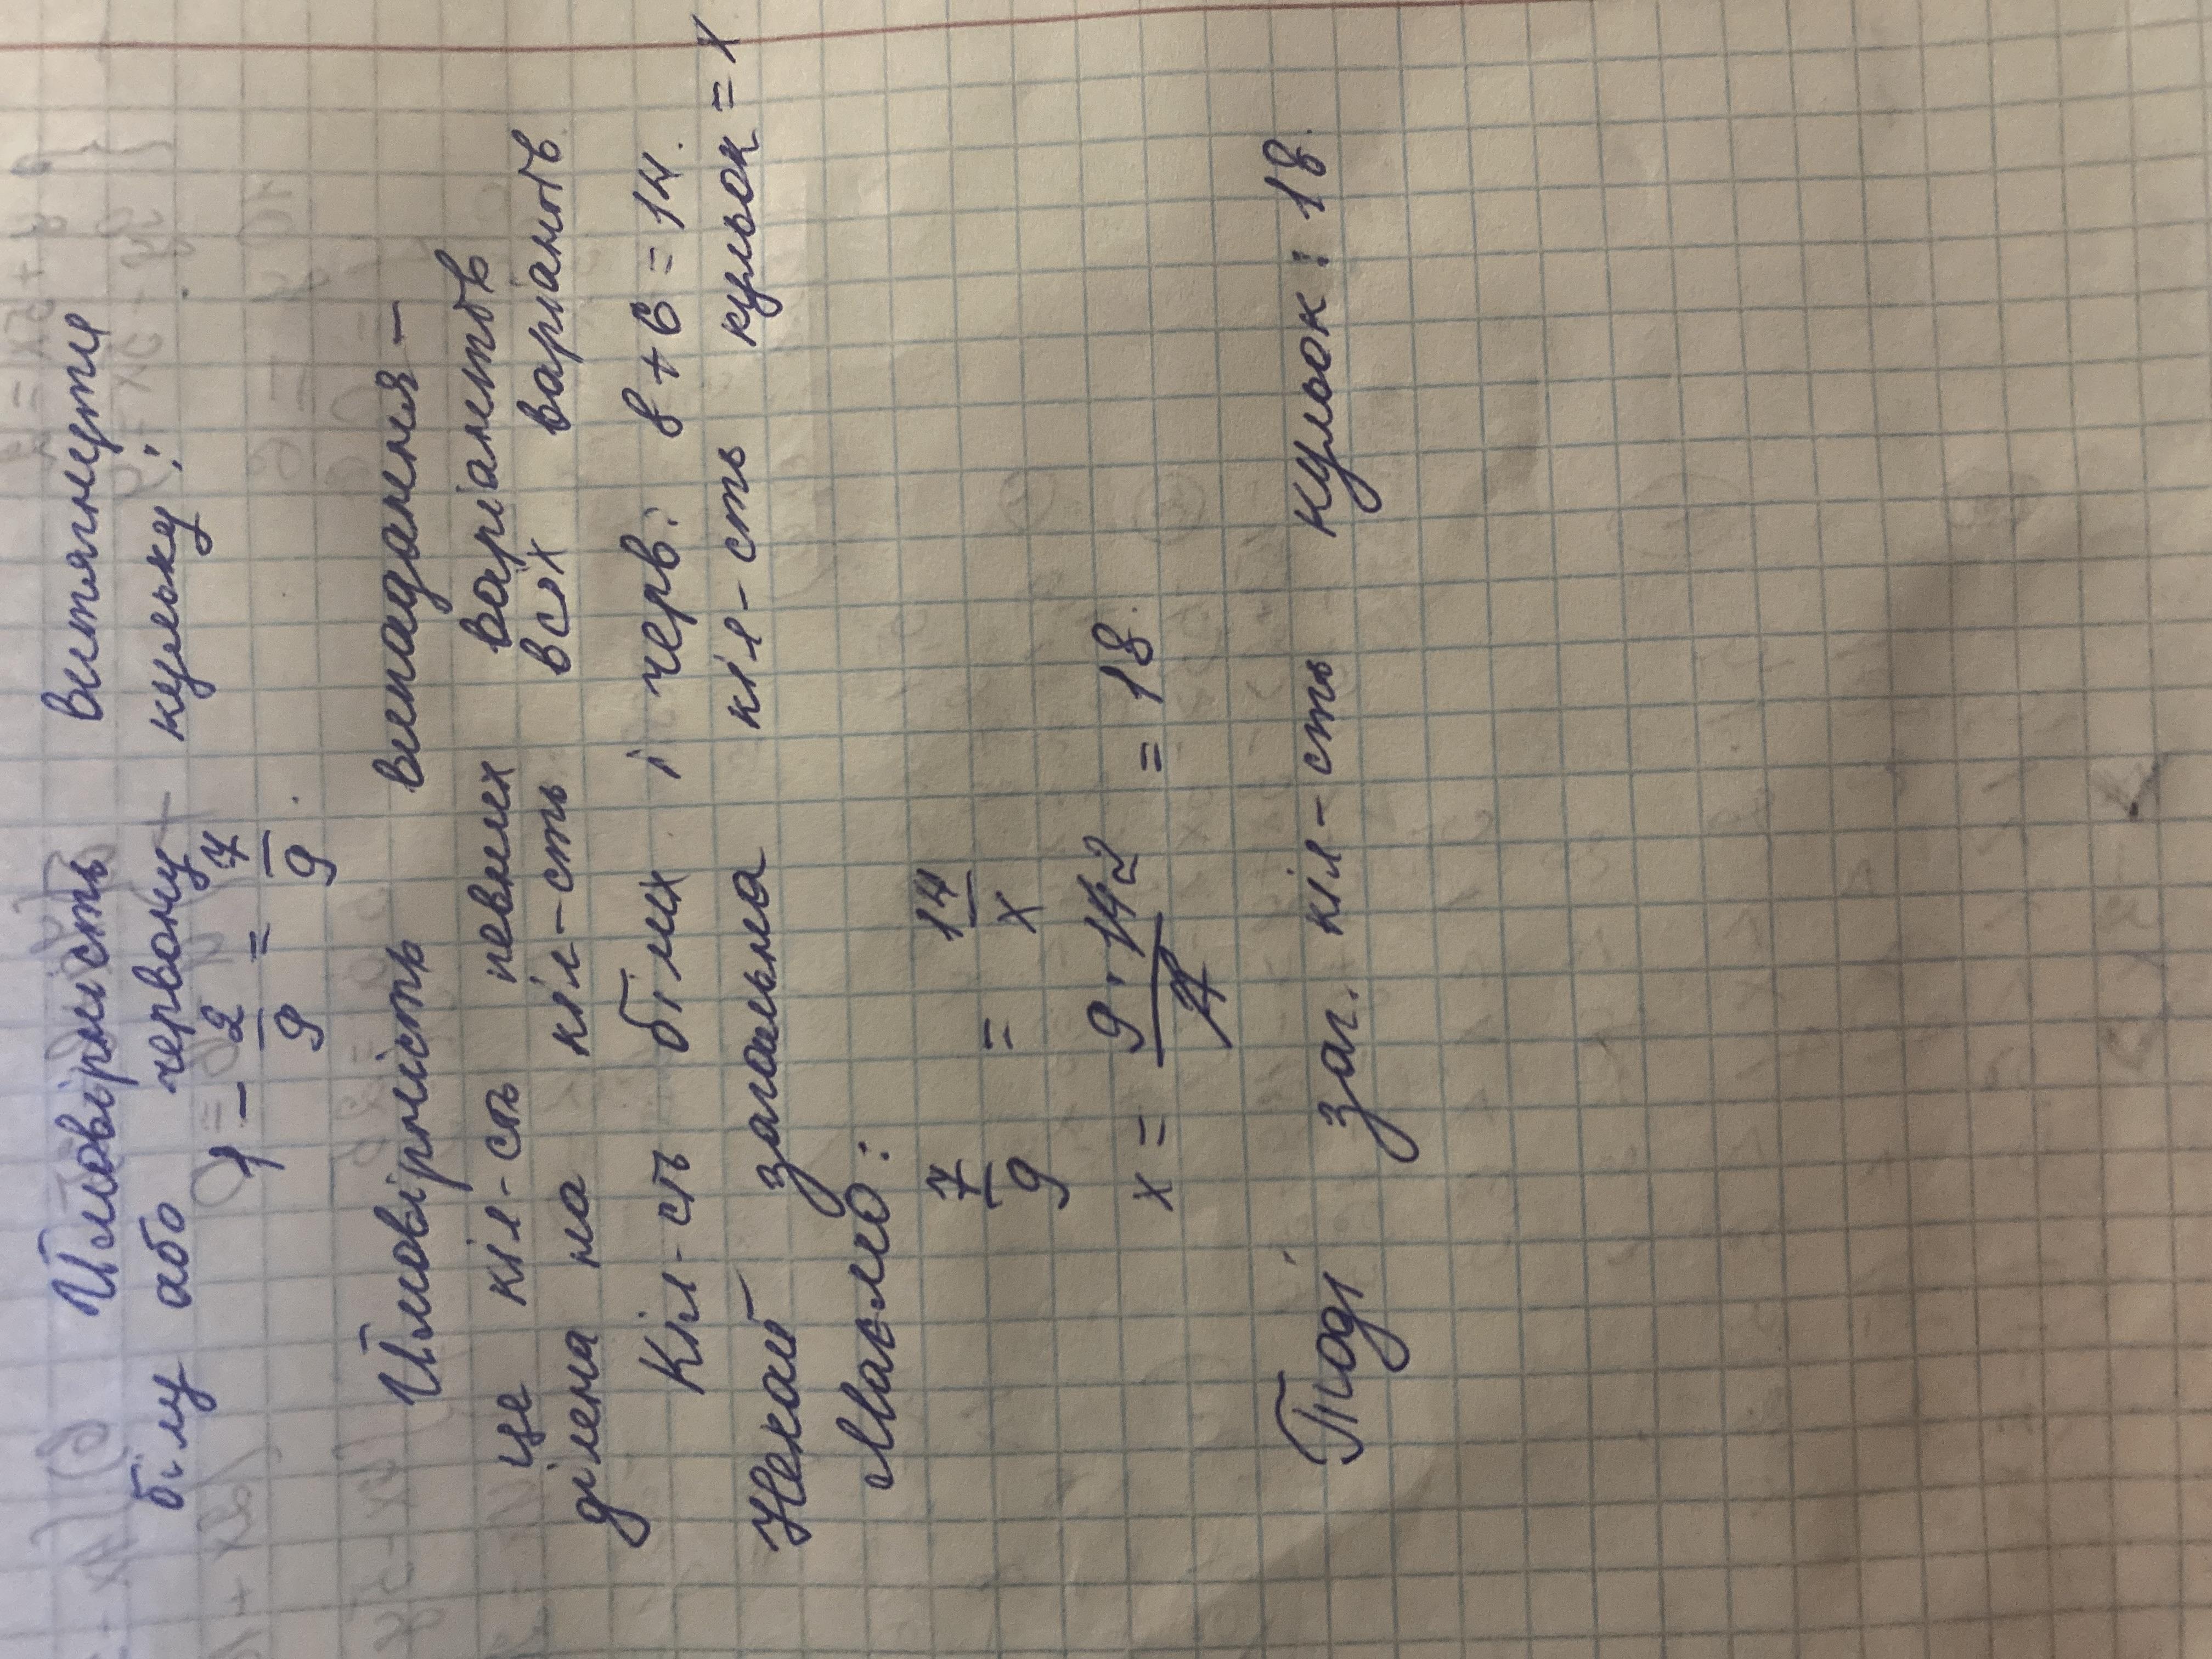 Ймовірність витягнути
білу або червону кульку:
1 - 2/9 = 7/9.
Ймовірність випадання -
це кіл-сть певних варіантів
ділена на кіл-сть всіх варіантів.
Кіл-сть білих і черв: 8 + 6 = 14.
Нехай загальна кіл-сть кульок = x
Маємо:
7/9 = 14/x
x = 9 · 14 2/7 = 18.
Тоді заг. кіл-сть кульок: 18.